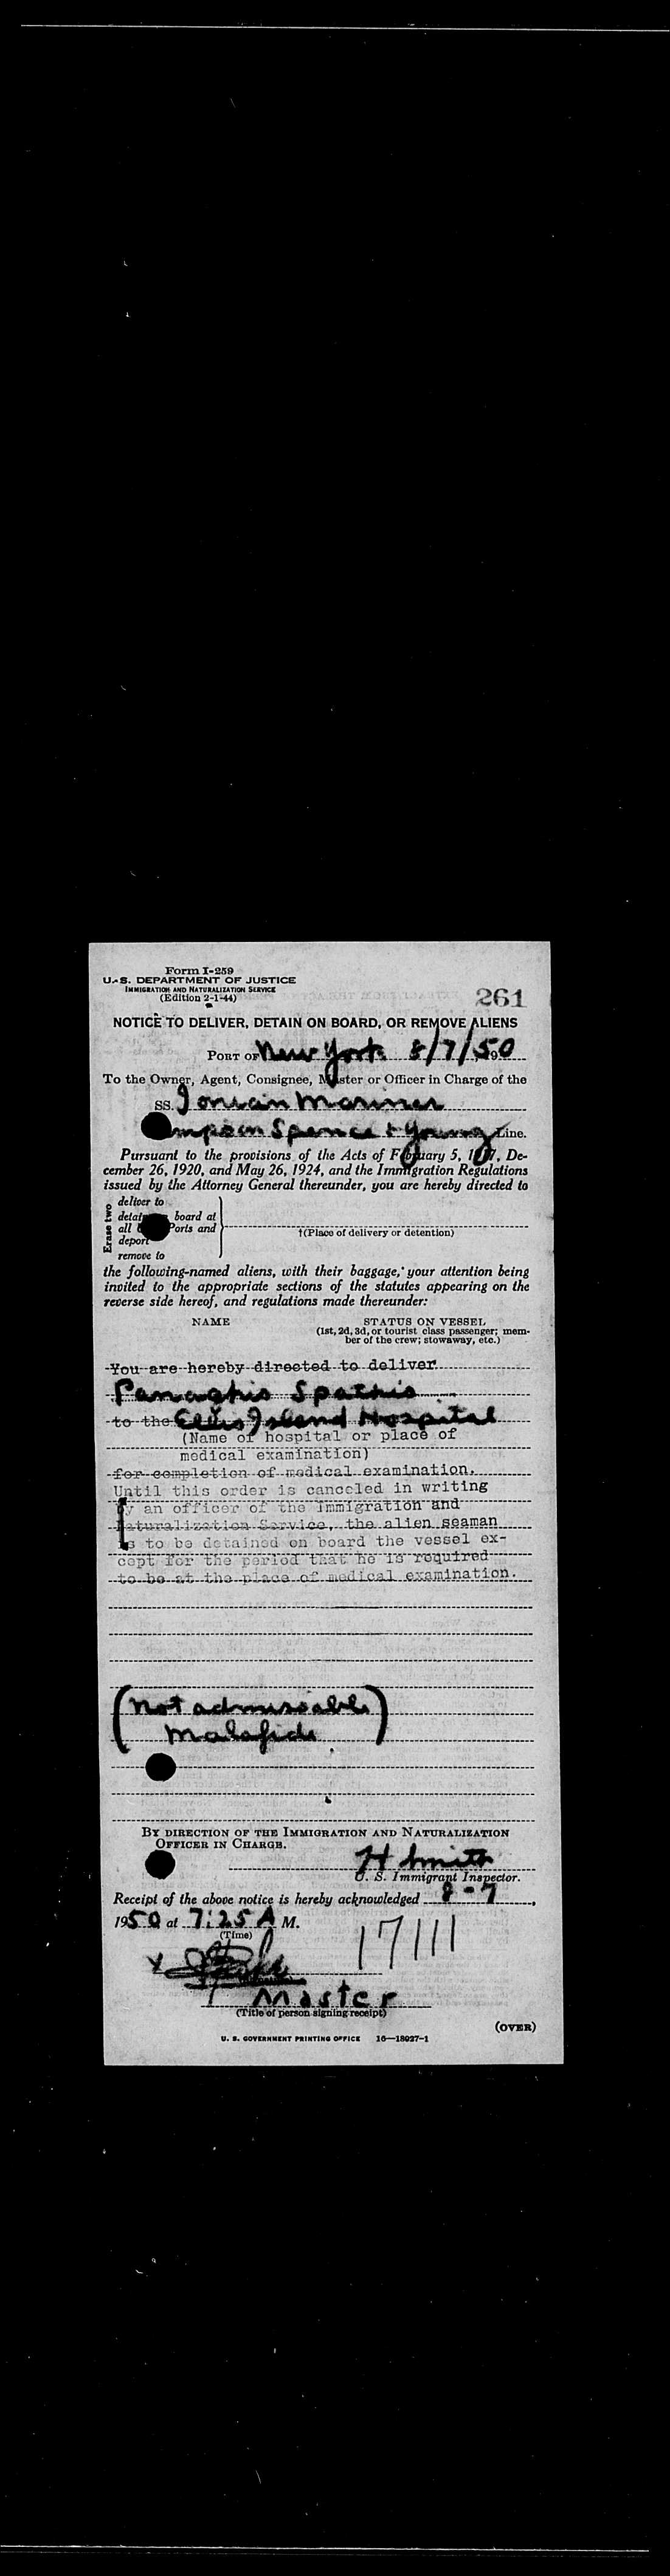 Form I-259
U. S. DEPARTMENT OF JUSTICE
IMMIGRATION AND NATURALIZATION SERVICE
(Edition 2-1-44)
261
NOTICE TO DELIVER, DETAIN ON BOARD, OR REMOVE ALIENS
PORT OF New York 8/7/50
To the Owner, Agent, Consignee, Master or Officer in Charge of the
SS. Ionian Mariner
Spence & Young Line.
Pursuant to the provisions of the Acts of February 5, 1917, De-
cember 26, 1920, and May 26, 1924, and the Immigration Regulations
issued by the Attorney General thereunder, you are hereby directed to
Erase two
deliver to
detain board at
all Ports and
deport
remove to
†(Place of delivery or detention)
the following-named aliens, with their baggage, your attention being
invited to the appropriate sections of the statutes appearing on the
reverse side hereof, and regulations made thereunder:
NAME STATUS ON VESSEL
(1st, 2d, 3d, or tourist class passenger; mem-
ber of the crew; stowaway, etc.)
You are hereby directed to deliver
Spathis
to the Ellis Island Hospital
(Name of hospital or place of
medical examination)
for completion of medical examination.
Until this order is canceled in writing
by an officer of the Immigration and
Naturalization Service, the alien seaman
is to be detained on board the vessel ex-
cept for the period that he is required
to be at the place of medical examination.
(Not admissable
Malafide)
BY DIRECTION OF THE IMMIGRATION AND NATURALIZATION
OFFICER IN CHARGE.
H Smith
U. S. Immigrant Inspector.
Receipt of the above notice is hereby acknowledged 8-7,
1950 at 7:25 A M.
(Time)
17111
X
Master
(Title of person signing receipt)
(OVER)
U. S. GOVERNMENT PRINTING OFFICE 16—18027-1